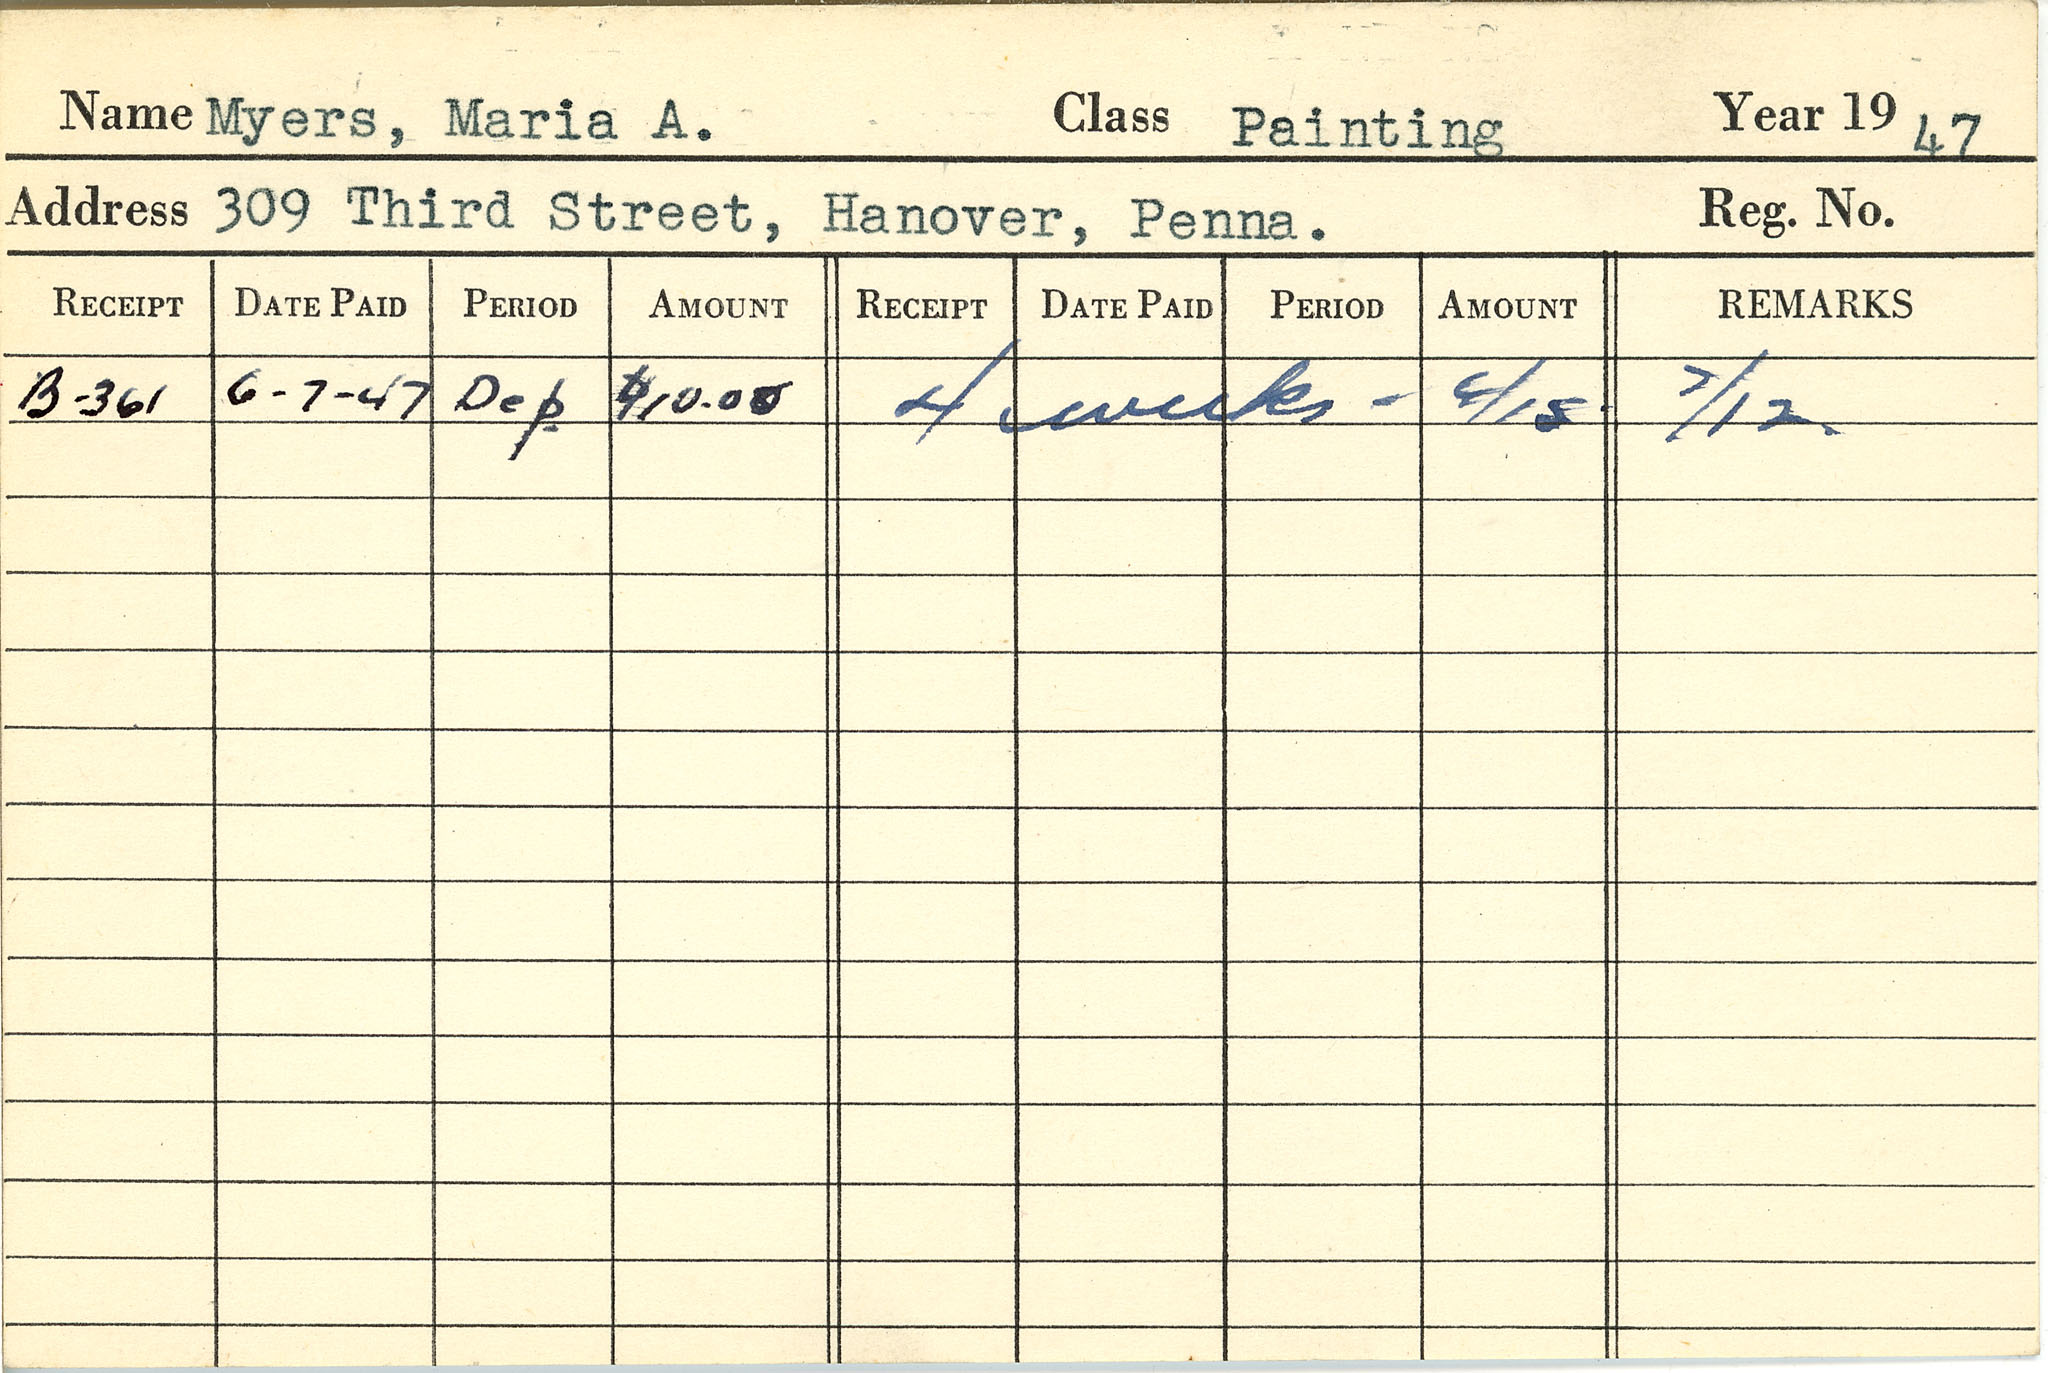 Name Myers, Maria A. Class Painting Year 19 47
Address 309 Third Street, Hanover, Penna. Reg. No.
RECEIPT DATE PAID PERIOD AMOUNT RECEIPT DATE PAID PERIOD AMOUNT REMARKS
B-361 6-7-47 Dep $10.00 4 weeks - 6/15 - 7/12.